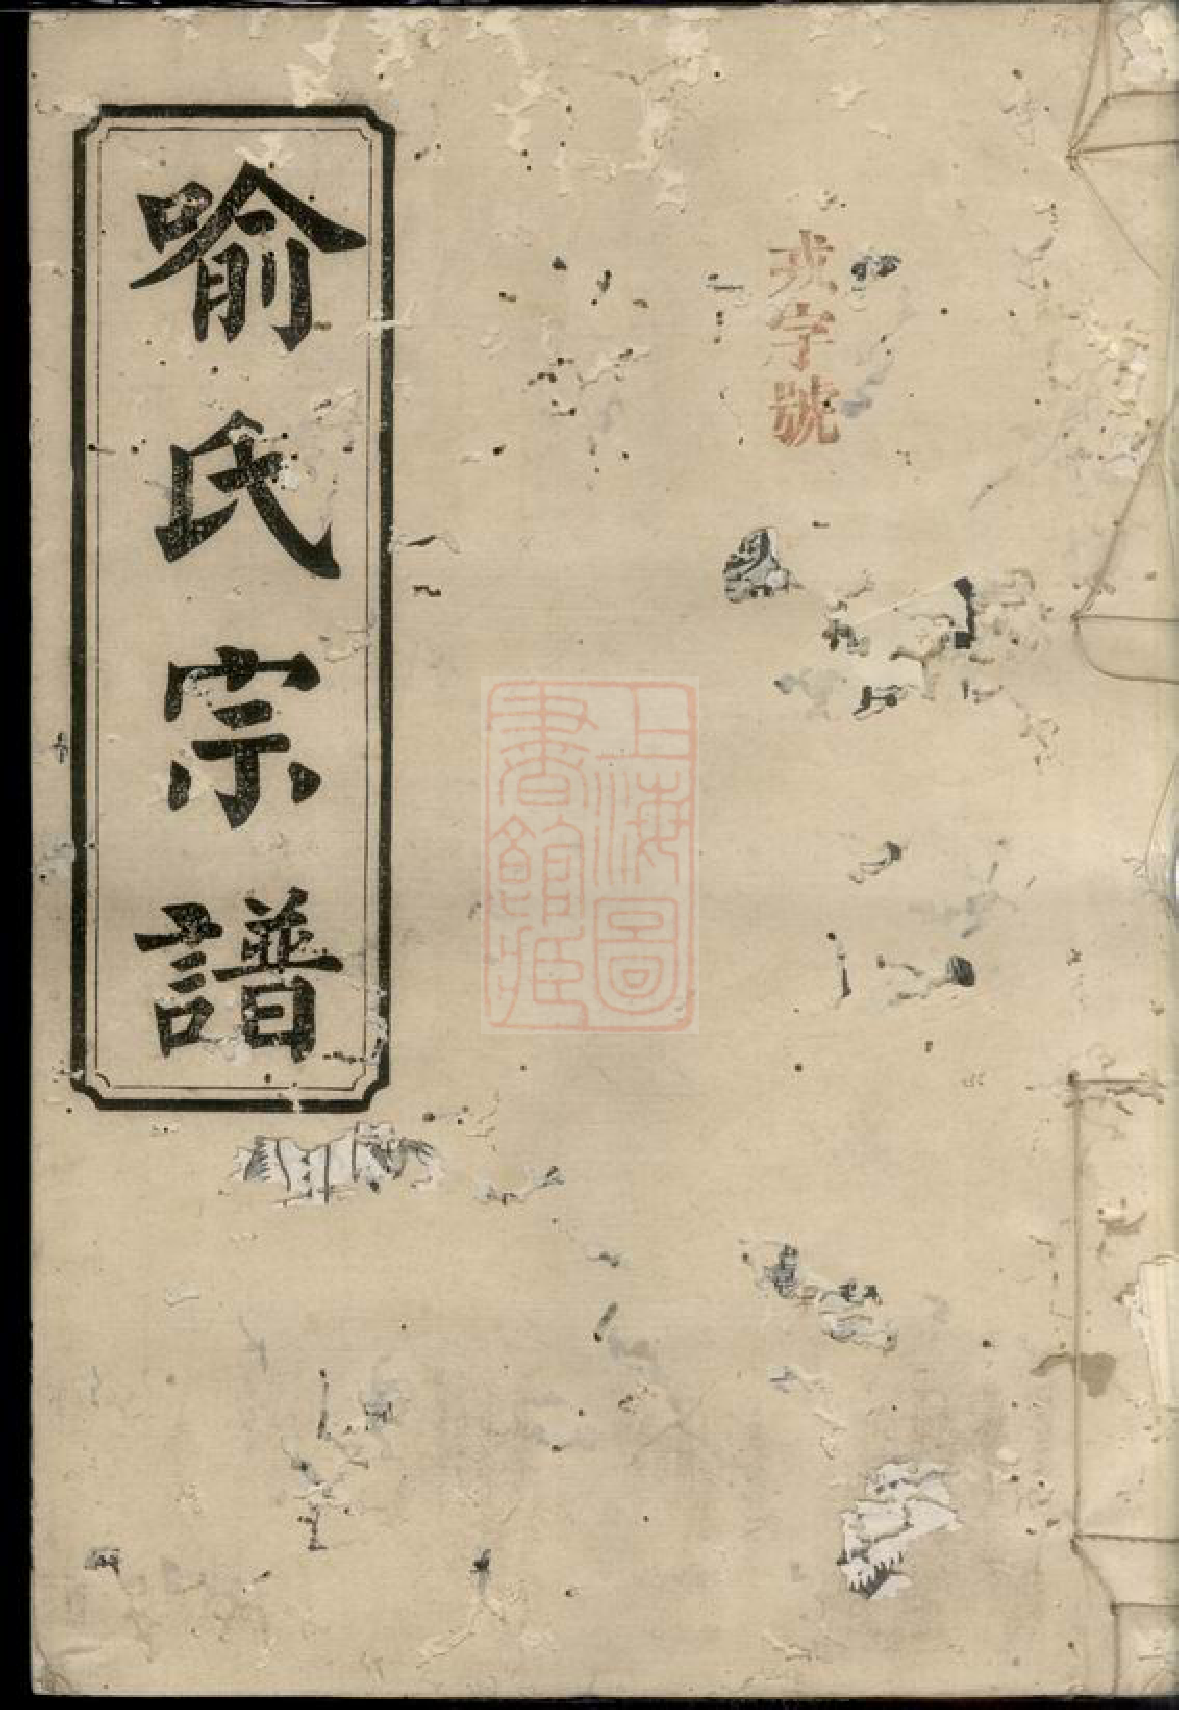 喻氏宗譜
字號
上海圖
書館藏